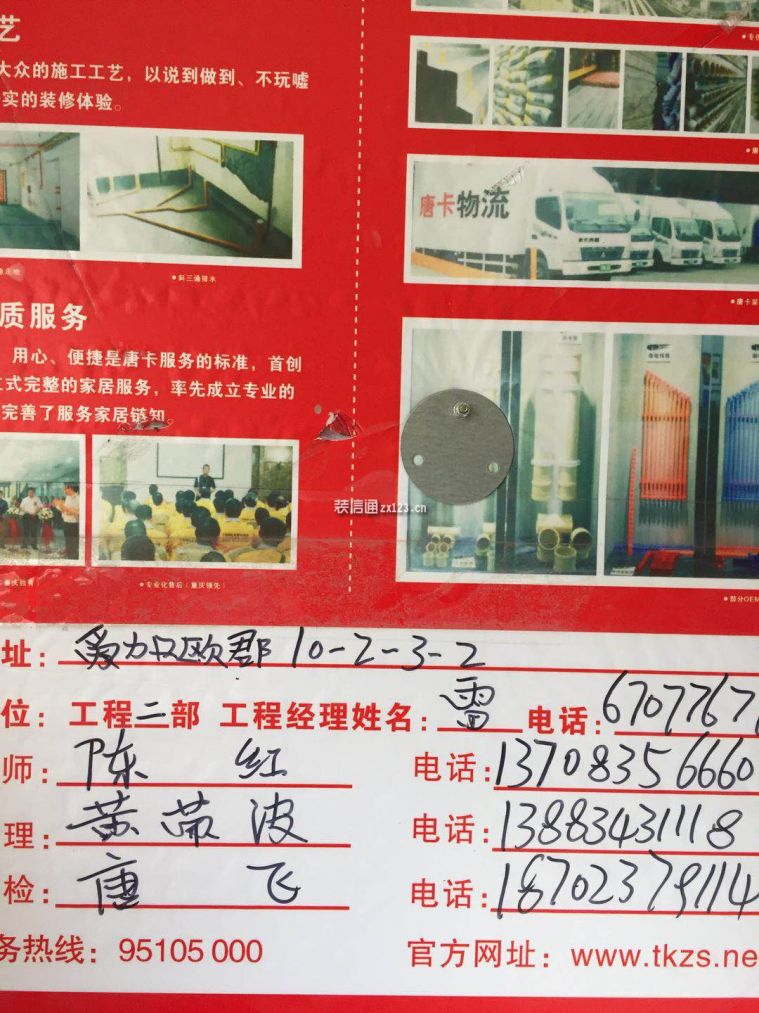 艺
大众的施工工艺，以说到做到、不玩嘘
实的装修体验。
斜三通排水
唐卡物流
质服务
用心、便捷是唐卡服务的标准，首创
式完整的家居服务，率先成立专业的
完善了服务家居链知
装信通zx123.cn
专业化售后（重庆领先）
部分OEM
址：爱加欧郡 10-2-3-2
位：工程二部 工程经理姓名：雷 电话：6707767
师：陈 红 电话：13708356660
理：黄 波 电话：13883431118
检：唐 飞 电话：18702379114
务热线：95105 000 官方网址：www.tkzs.ne